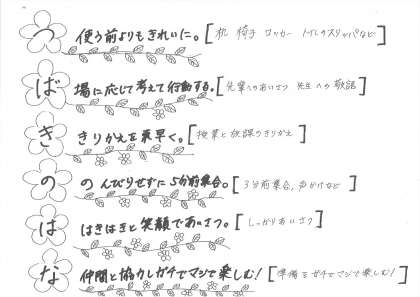 つ 使う前よりもきれいに。[机 椅子 ロッカー トイレのスリッパなど]
ば 場に応じて考えて行動する。[先輩へのあいさつ 先生への敬語]
き きりかえを素早く。[授業と放課のきりかえ]
の のんびりせずに5分前集合。[3分前集合、声かけなど]
は はきはきと笑顔であいさつ。[しっかりあいさつ]
な 仲間と協力しガチでマジで楽しむ![準備もガチでマジで楽しむ!]